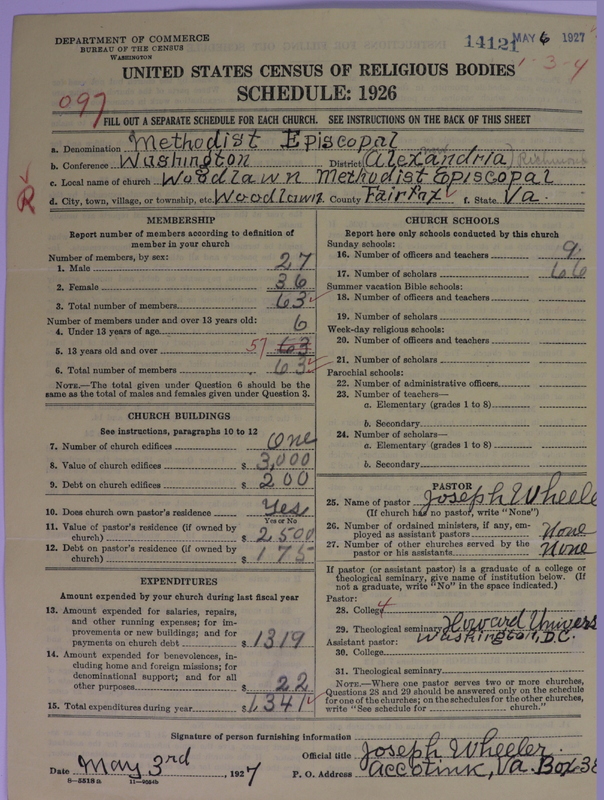 DEPARTMENT OF COMMERCE
BUREAU OF THE CENSUS
WASHINGTON
14121 MAY 6 1927
UNITED STATES CENSUS OF RELIGIOUS BODIES
1-3-4
SCHEDULE: 1926
097
FILL OUT A SEPARATE SCHEDULE FOR EACH CHURCH. SEE INSTRUCTIONS ON THE BACK OF THIS SHEET
a. Denomination Methodist Episcopal
b. Conference Washington District (Alexandria) Richmond
c. Local name of church Woodlawn Methodist Episcopal
R
d. City, town, village, or township, etc. Woodlawn e. County Fairfax f. State Va.
MEMBERSHIP
Report number of members according to definition of
member in your church
Number of members, by sex:
1. Male 27
2. Female 36
3. Total number of members 63
Number of members under and over 13 years old:
4. Under 13 years of age 6
5. 13 years old and over 57 63
6. Total number of members 63
NOTE.—The total given under Question 6 should be the
same as the total of males and females given under Question 3.
CHURCH BUILDINGS
See instructions, paragraphs 10 to 12
7. Number of church edifices One
8. Value of church edifices $ 3,000
9. Debt on church edifices $ 200
10. Does church own pastor's residence? Yes
Yes or No
11. Value of pastor's residence (if owned by
church) $ 2500
12. Debt on pastor's residence (if owned by
church) $ 175
EXPENDITURES
Amount expended by your church during last fiscal year
13. Amount expended for salaries, repairs,
and other running expenses; for im-
provements or new buildings; and for
payments on church debt $ 1319
14. Amount expended for benevolences, in-
cluding home and foreign missions; for
denominational support; and for all
other purposes $ 22
15. Total expenditures during year $ 1341
CHURCH SCHOOLS
Report here only schools conducted by this church
Sunday schools:
16. Number of officers and teachers 9.
17. Number of scholars 66
Summer vacation Bible schools:
18. Number of officers and teachers
19. Number of scholars
Week-day religious schools:
20. Number of officers and teachers
21. Number of scholars
Parochial schools:
22. Number of administrative officers
23. Number of teachers—
a. Elementary (grades 1 to 8)
b. Secondary
24. Number of scholars—
a. Elementary (grades 1 to 8)
b. Secondary
PASTOR
25. Name of pastor Joseph Wheele
(If church has no pastor, write "None")
26. Number of ordained ministers, if any, em-
ployed as assistant pastors None
27. Number of other churches served by the
pastor or his assistants None
If pastor (or assistant pastor) is a graduate of a college or
theological seminary, give name of institution below. (If
not a graduate, write "No" in the space indicated.)
Pastor:
28. College 4
29. Theological seminary Howard Univers
Washington, D.C.
Assistant pastor:
30. College
31. Theological seminary
NOTE.—Where one pastor serves two or more churches,
Questions 28 and 29 should be answered only on the schedule
for one of the churches; on the schedules for the other churches,
write "See schedule for church."
Signature of person furnishing information
Official title Joseph Wheeler.
Date May 3rd, 1927 P. O. Address Accotink, Va. Box 38
8—5518a 11—9054b